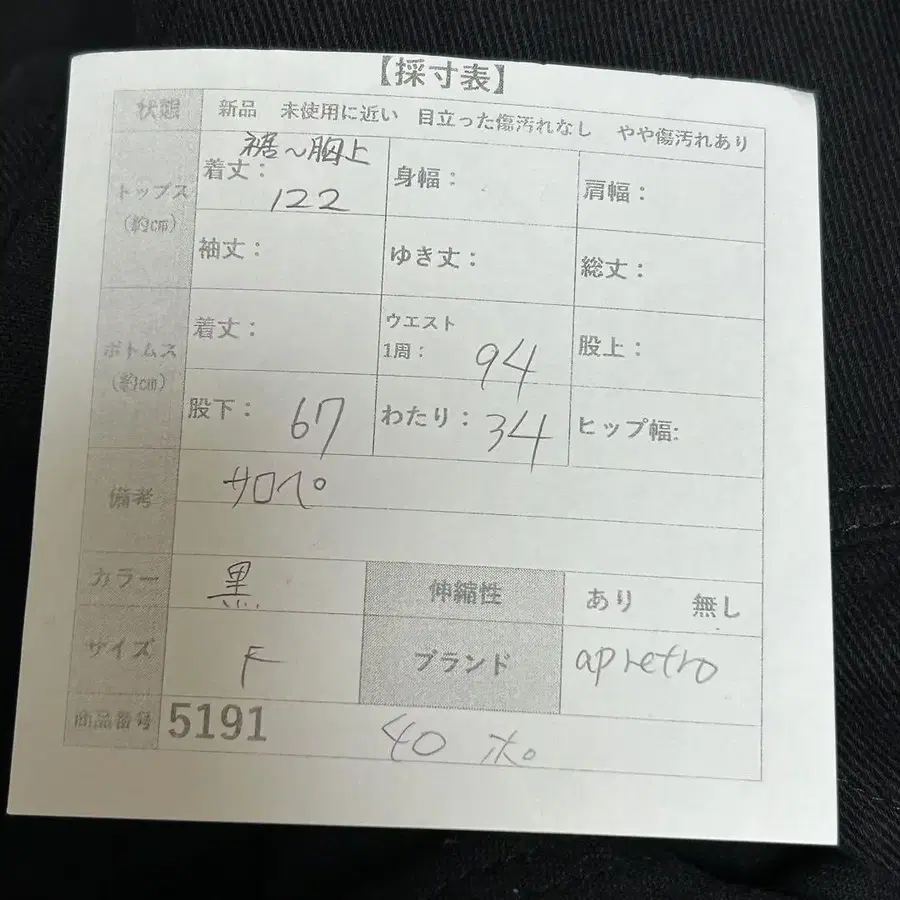 【採寸表】
状態 新品 未使用に近い 目立った傷汚れなし やや傷汚れあり
裾〜胸上
トップス (約cm) 着丈: 122 身幅: 肩幅:
袖丈: ゆき丈: 総丈:
ボトムス (約cm) 着丈: ウエスト 1周: 94 股上:
股下: 67 わたり: 34 ヒップ幅:
備考 サロペ
カラー 黒 伸縮性 あり 無し
サイズ F ブランド apretro
商品番号 5191 40 ポ